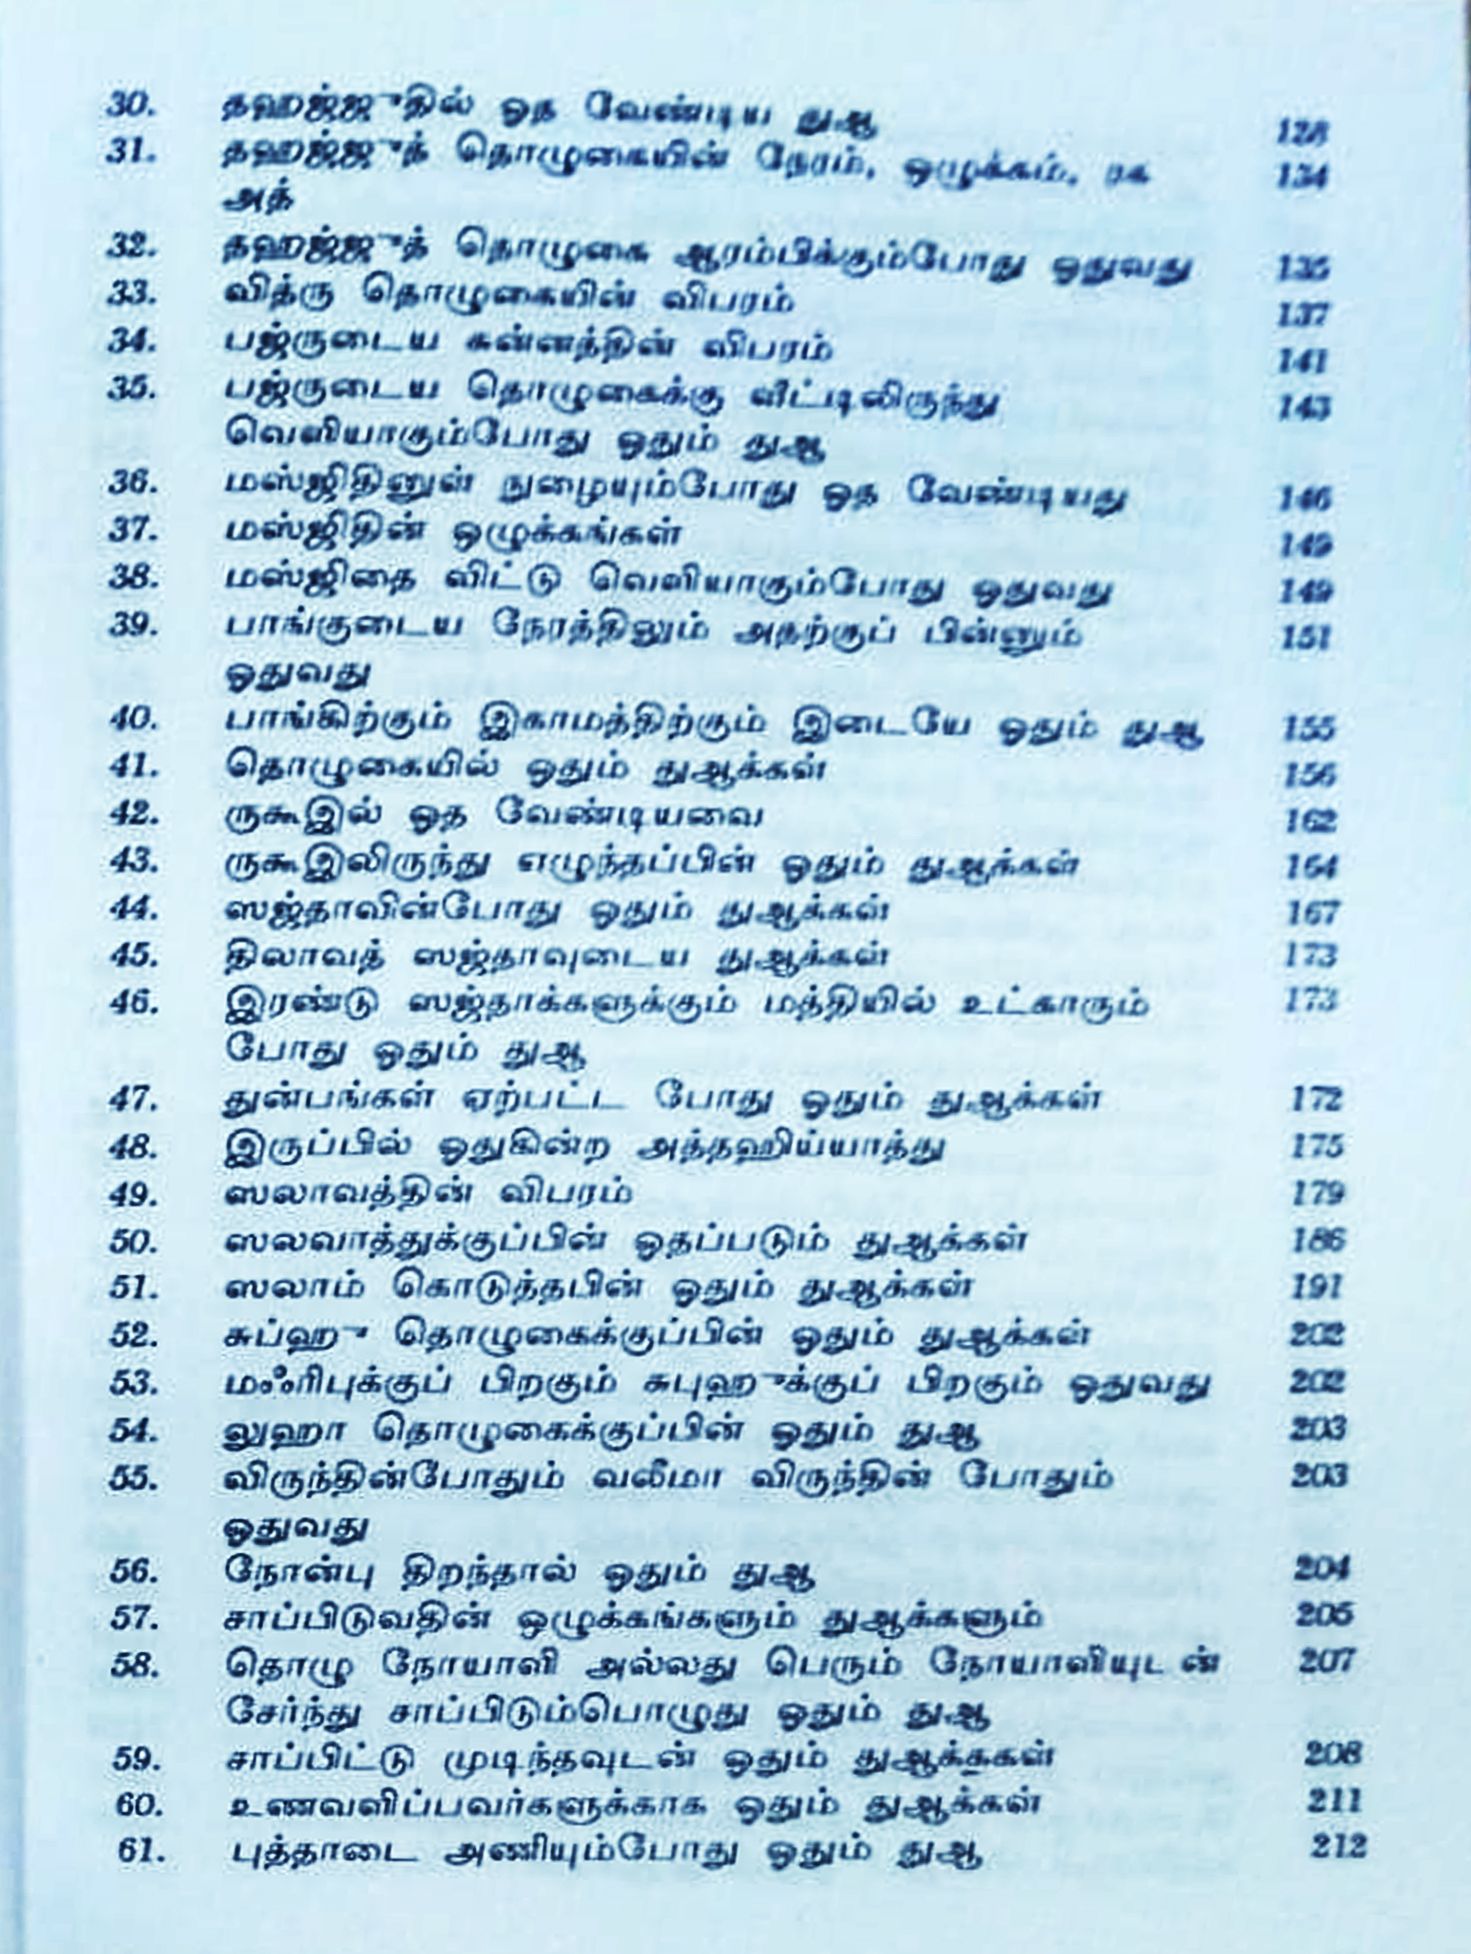 30. தஹஜ்ஜுதில் ஓத வேண்டிய துஆ 128
31. தஹஜ்ஜுத் தொழுகையின் நேரம், ஒழுக்கம், ரக 134
அத்
32. தஹஜ்ஜுத் தொழுகை ஆரம்பிக்கும்போது ஓதுவது 135
33. வித்ரு தொழுகையின் விபரம் 137
34. பஜ்ருடைய சுன்னத்தின் விபரம் 141
35. பஜ்ருடைய தொழுகைக்கு வீட்டிலிருந்து 143
வெளியாகும்போது ஓதும் துஆ
36. மஸ்ஜிதினுள் நுழையும்போது ஓத வேண்டியது 146
37. மஸ்ஜிதின் ஒழுக்கங்கள் 149
38. மஸ்ஜிதை விட்டு வெளியாகும்போது ஓதுவது 149
39. பாங்குடைய நேரத்திலும் அதற்குப் பின்னும் 151
ஓதுவது
40. பாங்கிற்கும் இகாமத்திற்கும் இடையே ஓதும் துஆ 155
41. தொழுகையில் ஓதும் துஆக்கள் 156
42. ருகூஇல் ஓத வேண்டியவை 162
43. ருகூஇலிருந்து எழுந்தப்பின் ஓதும் துஆக்கள் 164
44. ஸஜ்தாவின்போது ஓதும் துஆக்கள் 167
45. திலாவத் ஸஜ்தாவுடைய துஆக்கள் 173
46. இரண்டு ஸஜ்தாக்களுக்கும் மத்தியில் உட்காரும் 173
போது ஓதும் துஆ
47. துன்பங்கள் ஏற்பட்ட போது ஓதும் துஆக்கள் 172
48. இருப்பில் ஓதுகின்ற அத்தஹிய்யாத்து 175
49. ஸலாவத்தின் விபரம் 179
50. ஸலவாத்துக்குப்பின் ஓதப்படும் துஆக்கள் 186
51. ஸலாம் கொடுத்தபின் ஓதும் துஆக்கள் 191
52. சுப்ஹு தொழுகைக்குப்பின் ஓதும் துஆக்கள் 202
53. மஃரிபுக்குப் பிறகும் சுபுஹுக்குப் பிறகும் ஓதுவது 202
54. லுஹா தொழுகைக்குப்பின் ஓதும் துஆ 203
55. விருந்தின்போதும் வலீமா விருந்தின் போதும் 203
ஓதுவது
56. நோன்பு திறந்தால் ஓதும் துஆ 204
57. சாப்பிடுவதின் ஒழுக்கங்களும் துஆக்களும் 205
58. தொழு நோயாளி அல்லது பெரும் நோயாளியுடன் 207
சேர்ந்து சாப்பிடும்பொழுது ஓதும் துஆ
59. சாப்பிட்டு முடிந்தவுடன் ஓதும் துஆக்ககள் 208
60. உணவளிப்பவர்களுக்காக ஓதும் துஆக்கள் 211
61. புத்தாடை அணியும்போது ஓதும் துஆ 212